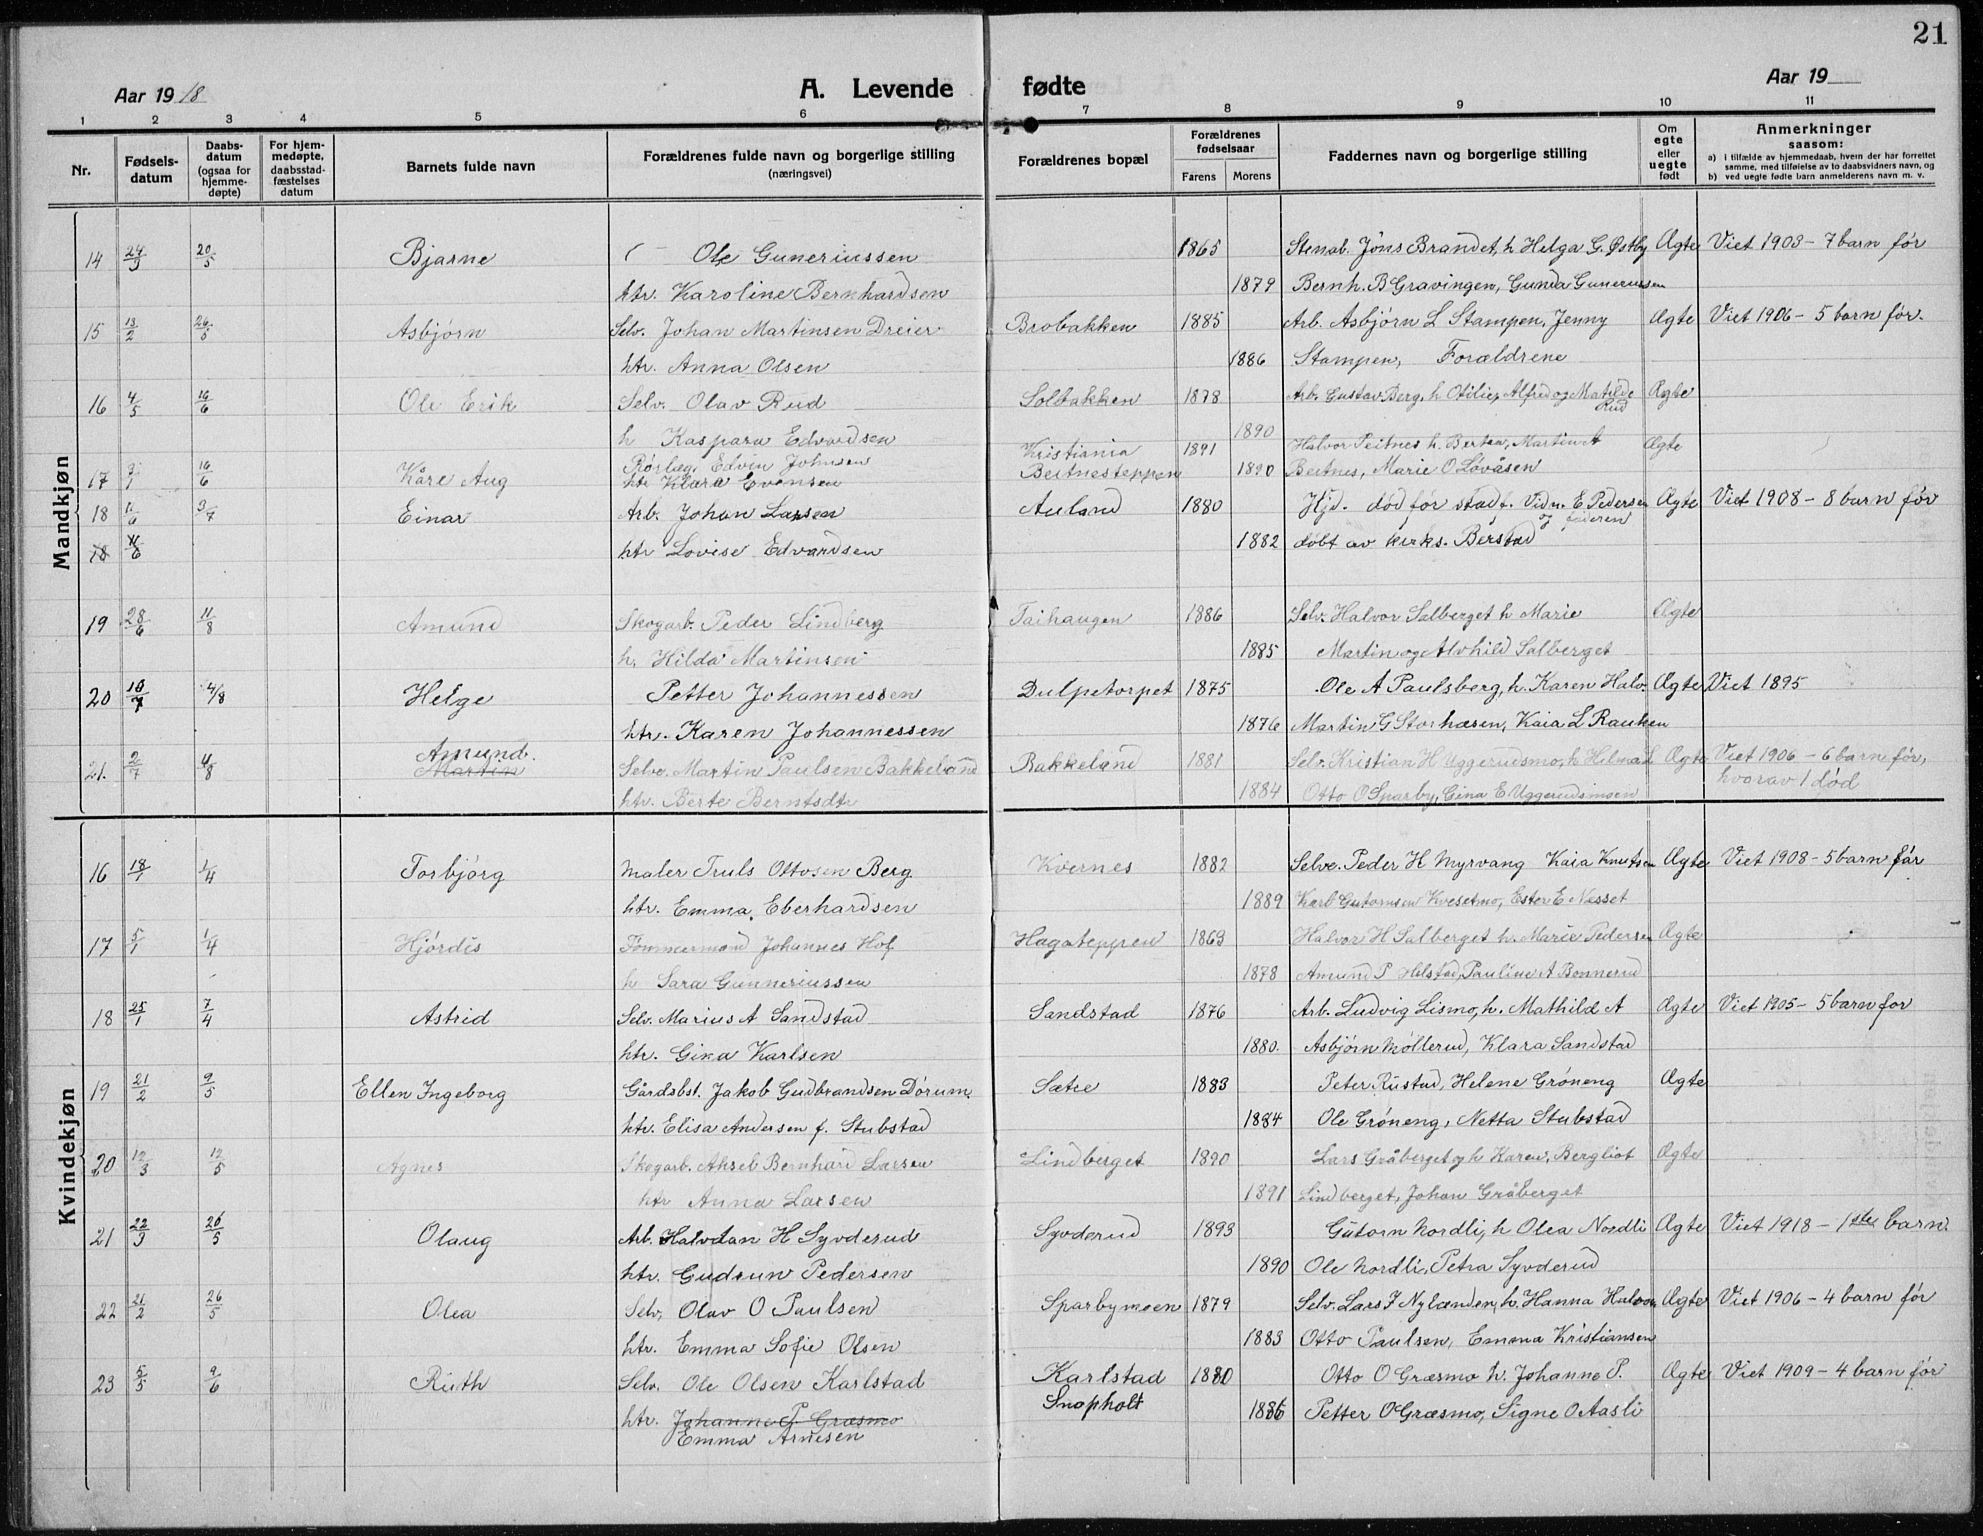 21
Aar 1918 A. Levende fødte Aar 19
1 2 3 4 5 6 7 8 9 10 11
Nr. Fødsels-datum Daabs-datum (ogsaa for hjemme-døpte) For hjem-medøpte, daabsstad-fæstelses datum Barnets fulde navn Forældrenes fulde navn og borgerlige stilling (næringsvei) Forældrenes bopæl Forældrenes fødselsaar Farens Morens Faddernes navn og borgerlige stilling Om egte eller uegte født Anmerkninger saasom:
a) i tilfælde av hjemmedaab, hvem der har forrettet samme, med tilføielse av to daabsvidners navn, og
b) ved uegte fødte barn anmelderens navn m. v.
Mandkjøn
14 24/3 20/5 Bjarne Ole Guneriussen 1865 Stenab. Jöns Brandet, h Helga G. Østby Ægte Viet 1903 - 7 barn før
htr. Karoline Bernhardsen 1879 Bernh. B Gravingen, Gunda Guneriussen
15 13/2 26/5 Asbjørn Selv. Johan Martinsen Dreier Brobakken 1885 Arb. Asbjørn L Stampen, Jenny Ægte Viet 1906 - 5 barn før.
htr. Anna Olsen 1886 Stampen, Forældrene
16 4/5 16/6 Ole Erik Selv. Olav Rud Solbakken 1878 Arb. Gustav Berg, h Otilie, Alfred og Matilde Rud Ægte
h Kaspara Edvardsen 1890
17 16/6 Kåre Aug Rørlæg. Edvin Johnsen Kristiania 1891 Halvor Peitnes h. Berta, Martin A Ægte
htr Klara Evensen Beitnesteppen 1890 Beitnes, Marie O Løvåsen
18 11/6 3/7 Einar Arb. Johan Larsen Auland 1880 Hjd. død før stadf. Vidn. E. Pedersen og faderen Ægte Viet 1908 - 8 barn før
18 11/6 htr Lovise Edvardsen 1882 døbt av kirks. Berstad
19 28/6 11/8 Amund Skogarb. Peder Lindberg Taihaugen 1886 Selv. Halvor Salberget h Marie Ægte
h. Hilda Martinsen 1885 Martin og Alvhild Salberget
20 10/7 4/8 Helge Petter Johannessen Dulpetorpet 1875 Ole A Paulsberg, h. Karen Halv. Ægte Viet 1895
htr. Karen Johannessen 1876 Martin G Storhæsen, Kaia L Rauken
21. 2/7 4/8 Amund. Martin Selve. Martin Paulsen Bakkeland Bakkeland 1881 Selv. Kristian H Uggerudsmo, h Helma L Ægte Viet 1906 - 6 barn før,
htr. Berte Berntsdtr 1884 Otto O Sparby, Gina E Uggerudsmoen hvorav 1 død
Kvindekjøn
16 18/1 1/4 Torbjörg Maler Truls Ottosen Berg Kvernes 1882 Selve. Peder H Myrvang Kaia Knutsen Ægte Viet 1908 - 5 barn før
htr. Emma Eberhardsen 1889 Karl Gutormsen Kvesetmo, Ester E Nesset
17 5/1 1/4 Hjördis Tömmermand Johannes Hof Hagateppen 1869 Halvor H Salberget h. Marie Pedersen Ægte
h Sara Gunneriussen 1878 Amund P Helstad, Pauline A Bonnerud
18 25/1 7/4 Astrid Selv. Marius A Sandstad Sandstad 1876 Arb. Ludvig Lismo, h. Mathild A Ægte Viet 1905 - 5 barn før
htr. Gina Karlsen 1880. Asbjörn Möllerud, Klara Sandstad
19 21/2 9/5 Ellen Ingeborg Gårdsbst. Jakob Gudbrandsen Dörum. Sætre 1883 Peter Rustad, Helene Gröneng Ægte
htr. Elisa Andersen f. Stubstad 1884 Ole Gröneng, Netta Stubstad
20 12/3 12/5 Agnes Skogarb. Aksel Bernhard Larsen Lindberget 1890 Lars Gråberget og h Karen, Bergliot Ægte
htr Anna Larsen 1891 Lindberget, Johan Gråberget
21 22/3 20/5 Olaug Arb. Halvdan H Syvderud Syvderud 1893 Gutorn Nordli, h Olea Nordli Ægte Viet 1918 - 1ste barn.
htr. Gudrun Pedersen 1890 Ole Nordli, Petra Syvderud
22 21/2 26/5 Olea Selv, Olav O Paulsen Sparbymoen 1879 Selv. Lars J Nylænden, h. Hanna Halvor. Ægte Viet 1906 - 4 barn før
htr. Emma Sofie Olsen 1883 Otto Paulsen, Emma Kristiansen
23 5/5 9/6 Ruth Selv. Ole Olsen Karlstad Karlstad 1880 Otto O Græsmo h. Johanne P. Ægte Viet 1909 - 4 barn før
htr. Johanne P Græsmo Snapholt 1886 Petter O Græsmo, Signe O Aasli
Emma Arnesen